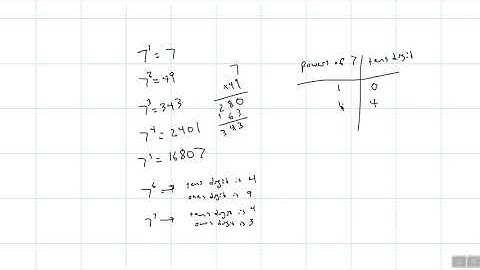 7¹ = 7
7² = 49
7³ = 343
7⁴ = 2401
7⁵ = 16807
7⁶ → tens digit is 4
ones digit is 9
7⁷ → tens digit is 4
ones digit is 3
7
x49
280
63
343
powers of 7 | tens digit
1 | 0
4